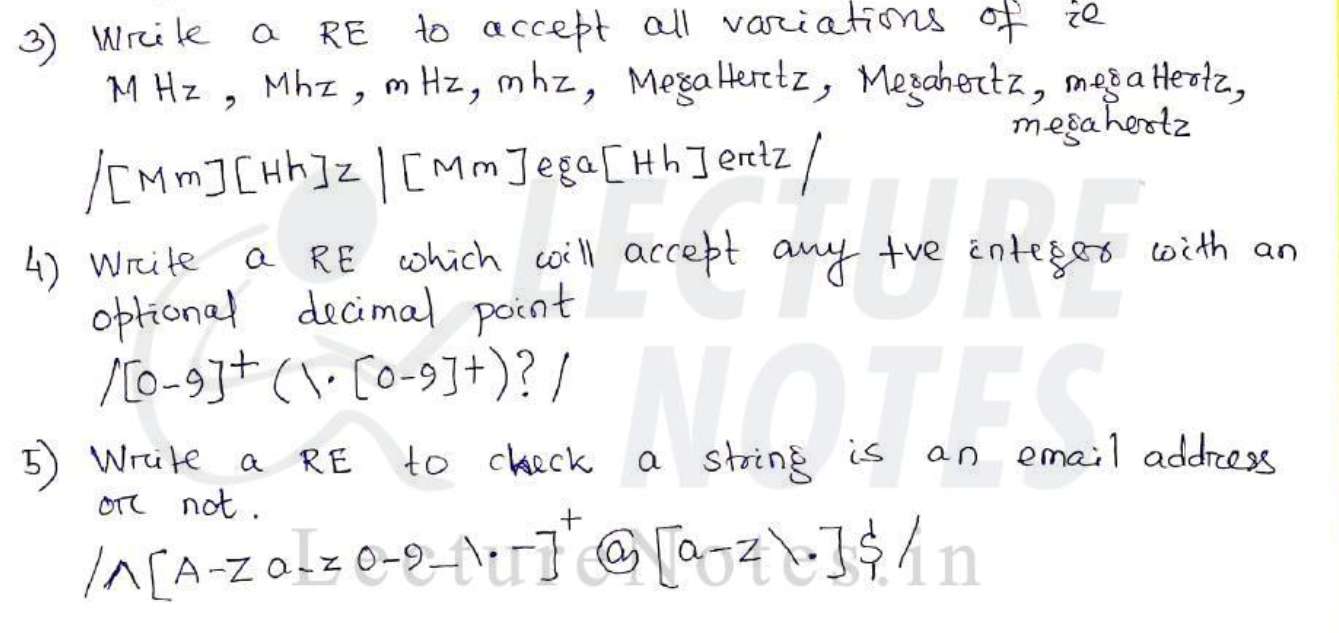 3) Write a RE to accept all variations of ie
MHz, Mhz, mHz, mhz, MegaHertz, Megahertz, megaHertz,
megahertz
/[Mm][Hh]z|[Mm]ega[Hh]ertz/
4) Write a RE which will accept any +ve integer with an
optional decimal point
/[0-9]+(\.[0-9]+)?/
5) Write a RE to check a string is an email address
or not.
/^[A-Za-z0-9_\.-]+@[a-z\.]$/
LECTURE
NOTES
LectureNotes.in